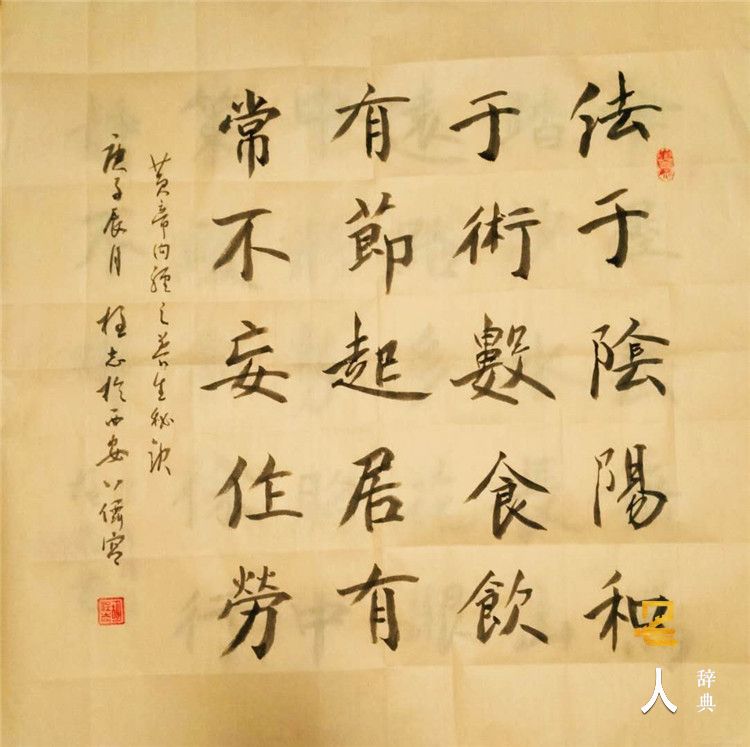 法于陰陽和
于術數食飲
有節起居有
常不妄作勞
黃帝內經之養生秘訣
庚子辰月 志於西安八僊宮
人 辞典